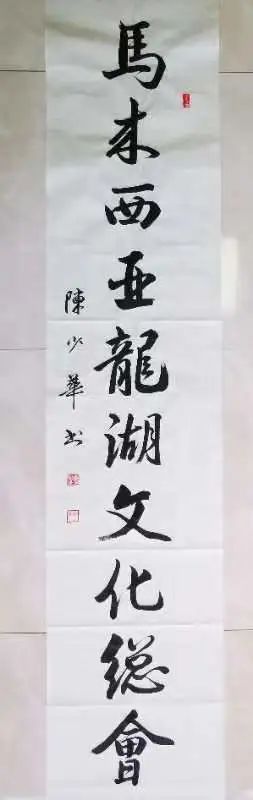 馬来西亚龍湖文化総會
陳少華书